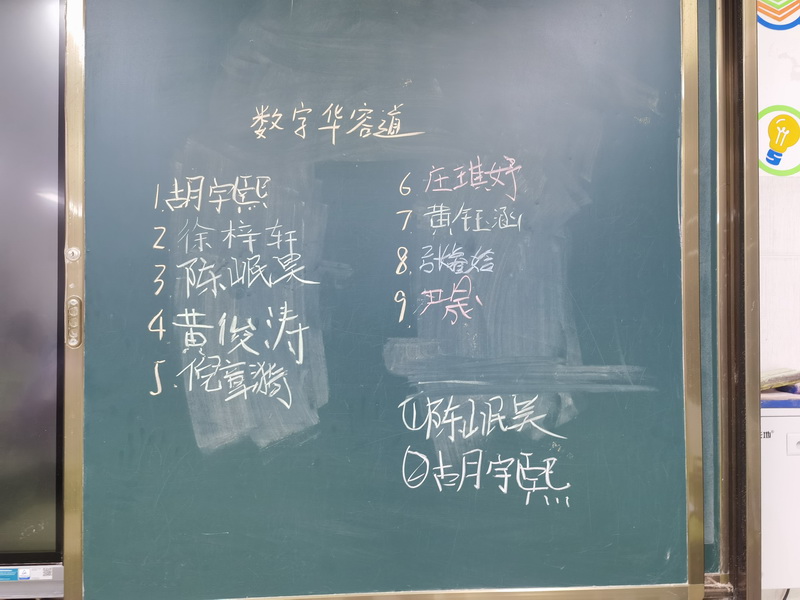 数字华容道
1.胡宇熙
2.徐梓轩
3.陈岷昊
4.黄俊涛
5.倪章漪
6 庄琪妤
7 黄钰涵
8.
9.尹晟
①陈岷昊
②胡宇熙